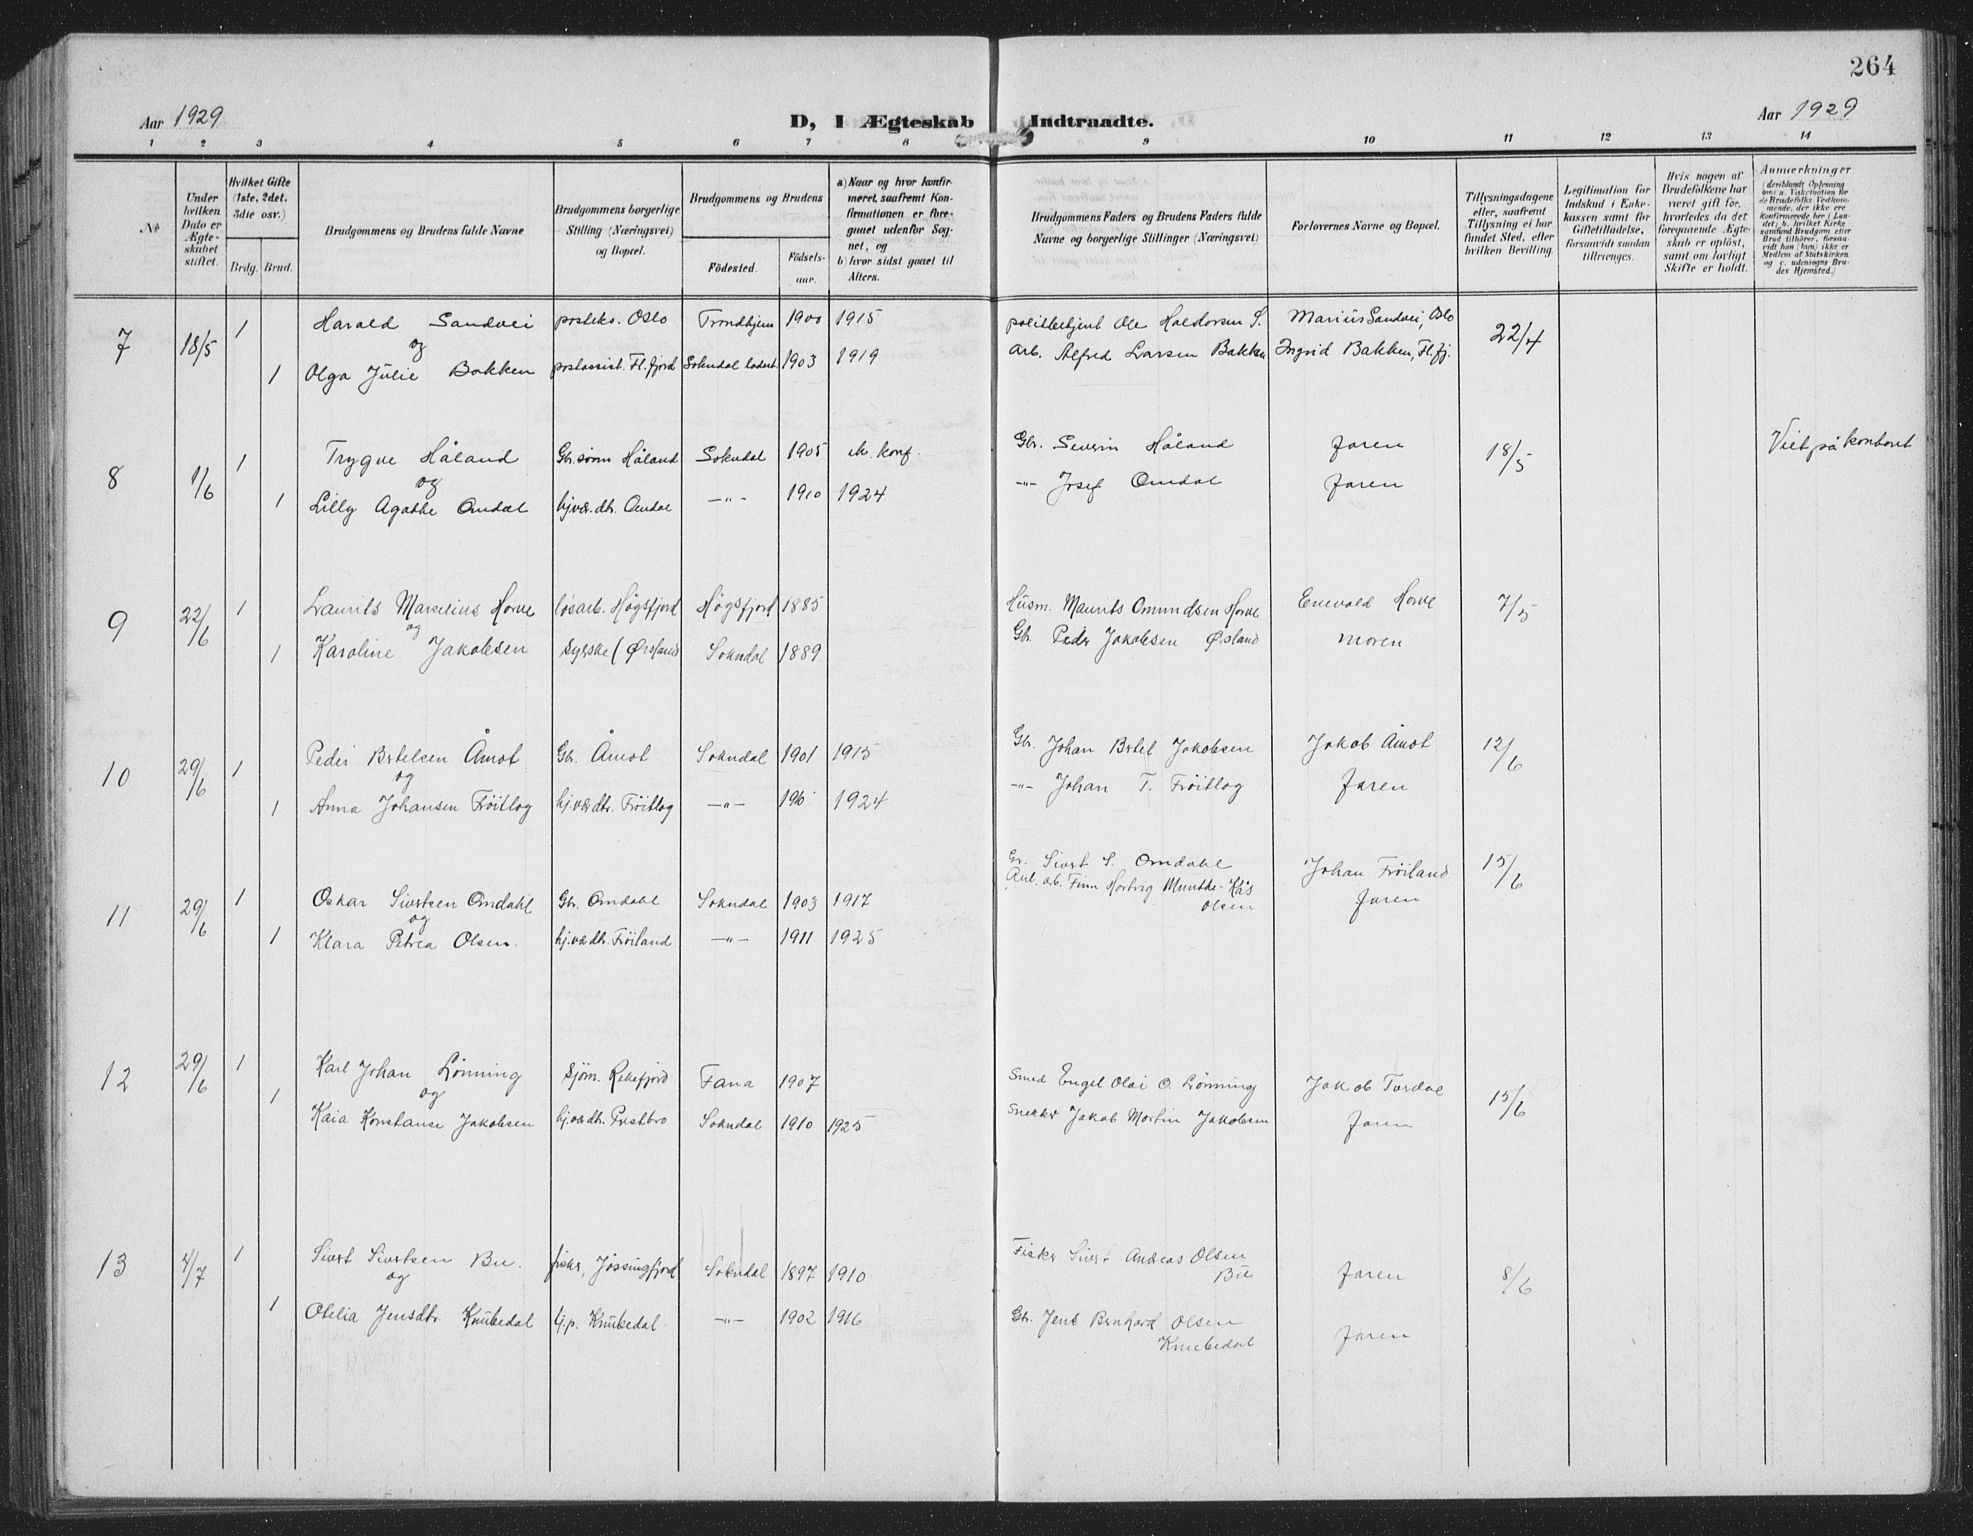 264
Aar 1929
D, I Ægteskab Indtraadte.
Aar 1929
1 2 3 4 5 6 7 8 9 10 11 12 13 14
№
Under hvilken Dato er Ægteskabet stiftet.
Hvilket Gifte (1ste, 2det. 3die osv.)
Brdg. Brud.
Brudgommens og Brudens fulde Navne
Brudgommens borgerlige Stilling (Næringsvei) og Bopæl.
Brudgommens og Brudens
Födested.
Födselsaar.
a) Naar og hvor konfirmeret, saafremt Konfirmationen er foregaaet udenfor Sognet, og
b) hvor sidst gaaet til Alters.
Brudgommens Faders og Brudens Faders fulde Navne og borgerlige Stillinger (Næringsvei)
Forlovernes Navne og Bopæl.
Tillysningsdagene eller, saafremt Tillysning ei har fundet Sted, efter hvilken Bevilling.
Legitimation for Indskud i Enkekassen samt for Giftetilladelse, forsaavidt saadan tiltrænges.
Hvis nogen af Brudefolkene har været gift før, hvorledes da det foregaaende Ægteskab er opløst, samt om lovligt Skifte er holdt.
Anmærkninger
7 18/5 1 Harald Sandvei posteks. Oslo Trondhjem 1900 1915 politibetjent Ole Haldorsen S. Marius Sandvei, Oslo 22/4
og
1 Olga Julie Bakken postassist. Fl.fjord Sokndal ladest. 1903 1919 Arb. Alfred Larsen Bakken Ingrid Bakken, Fl.fj.
8 1/6 1 Trygve Håland Gbr.sønn Håland Sokndal 1905 ik. konf. Gbr. Severin Håland Faren 18/5 Viet på kontoret
og
1 Lilly Agathe Omdal hjvær.dtr. Omdal —"— 1910 1924 —"— Josef Omdal Faren
9 22/6 1 Laurits Marselius Horve løsarb. Høgsfjord Høgsfjord 1885 Husm. Maurits Omundsen Horve Enevald Horve 7/5
og
1 Karoline Jakobsen syerske (Øisland Sokndal 1889 Gbr. Peder Jakobsen Øisland Moren
10 29/6 1 Peder Bertelsen Åmot Gbr. Åmot Sokndal 1901 1915 Gbr. Johan Bertel Jakobsen Jakob Åmot 12/6
og
1 Anna Johansen Frøitlog hj.vær.dtr. Frøitlog —"— 1924 —"— Johan T. Frøitlog Faren
11 29/6 1 Oskar Sivertsen Omdahl Gbr. Omdahl Sokndal 1903 1917 Gbr. Sivert S. Omdahl Johan Frøiland 15/6
og
1 Klara Petrea Olsen. hj.vær.dtr. Frøiland —"— 1911 1925 Anl. arb. Finn Hartvig Munthe-Kås
Olsen Faren
12 29/6 1 Karl Johan Lønning Sjøm. Rekefjord Fana 1907 Smed Engel Olai O. Lønning Jakob Tordal 15/6
og
1 Kaia Konstanse Jakobsen hj.vær.dtr. Prestbro Sokndal 1910 1925 Snekker Jakob Martin Jakobsen Faren
13 4/7 1 Sivert Sivertsen Bu. fisker, Jøssingfjord Sokndal 1897 1910 Fisker Sivert Andreas Olsen
Bu Faren 8/6
og
1 Otelia Jensdtr. Knubedal hj.p. Knubedal. —"— 1902 1916 Gbr. Jens Bernhard Olsen
Knubedal Faren